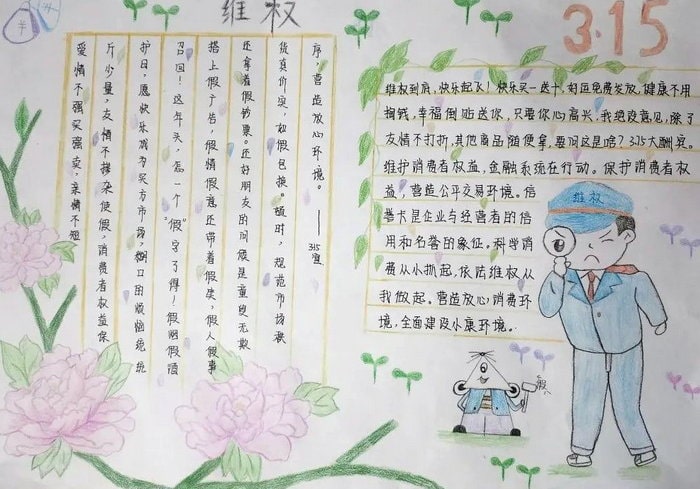 维权
3·15
爱情不强买强卖,亲情不短
斤少量,友情不掺杂使假,消费者权益保
护日,愿快乐成为买方市场,糊口的烦恼统统
召回!这年头,怎一个“假”字了得!假烟假酒
搭上假广告,假情假意还带着假笑,假人假事
还拿着假钞票。还好朋友的问候是童叟无欺
货真价实,如假包换。随时,规范市场秩
序,营造放心环境。——315宣
维权到底,快乐起飞!快乐买一送十,好运免费发放,健康不用
掏钱,幸福倒贴送你,只要你心高兴,我绝没意见,除了
友情不打折,其他商品随便拿,要问这是啥?315大酬宾。
维护消费者权益,金融系统在行动。保护消费者权
益,营造公平交易环境。信
誉卡是企业与经营者的信
用和名誉的象征。科学消
费从小抓起,依法维权从
我做起。营造放心消费环
境,全面建设小康环境。
维权
维权
假